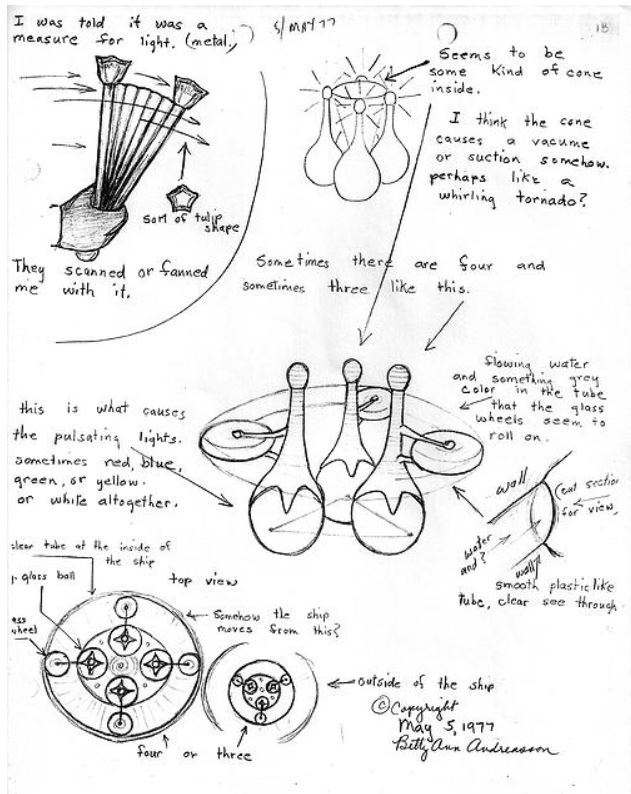 I was told it was a
measure for light. (metal,)
5/MAY 77
18
Seems to be
some kind of cone
inside.
I think the cone
causes a vacume
or suction somehow.
perhaps like a
whirling tornado?
sort of tulip
shape
They scanned or fanned
me with it.
Sometimes there are four and
sometimes three like this.
flowing water
and something grey
color in the tube
that the glass
wheels seem to
roll on.
this is what causes
the pulsating lights.
sometimes red, blue,
green, or yellow.
or white altogether.
wall
(cut section
for view,
water
and?
wall
smooth plastic like
tube, clear see through
clear tube at the inside of
the ship
glass ball
top view
wheel
Somehow the ship
moves from this?
outside of the ship
four or three
©Copyright
May 5, 1977
Betty Ann Andreasson